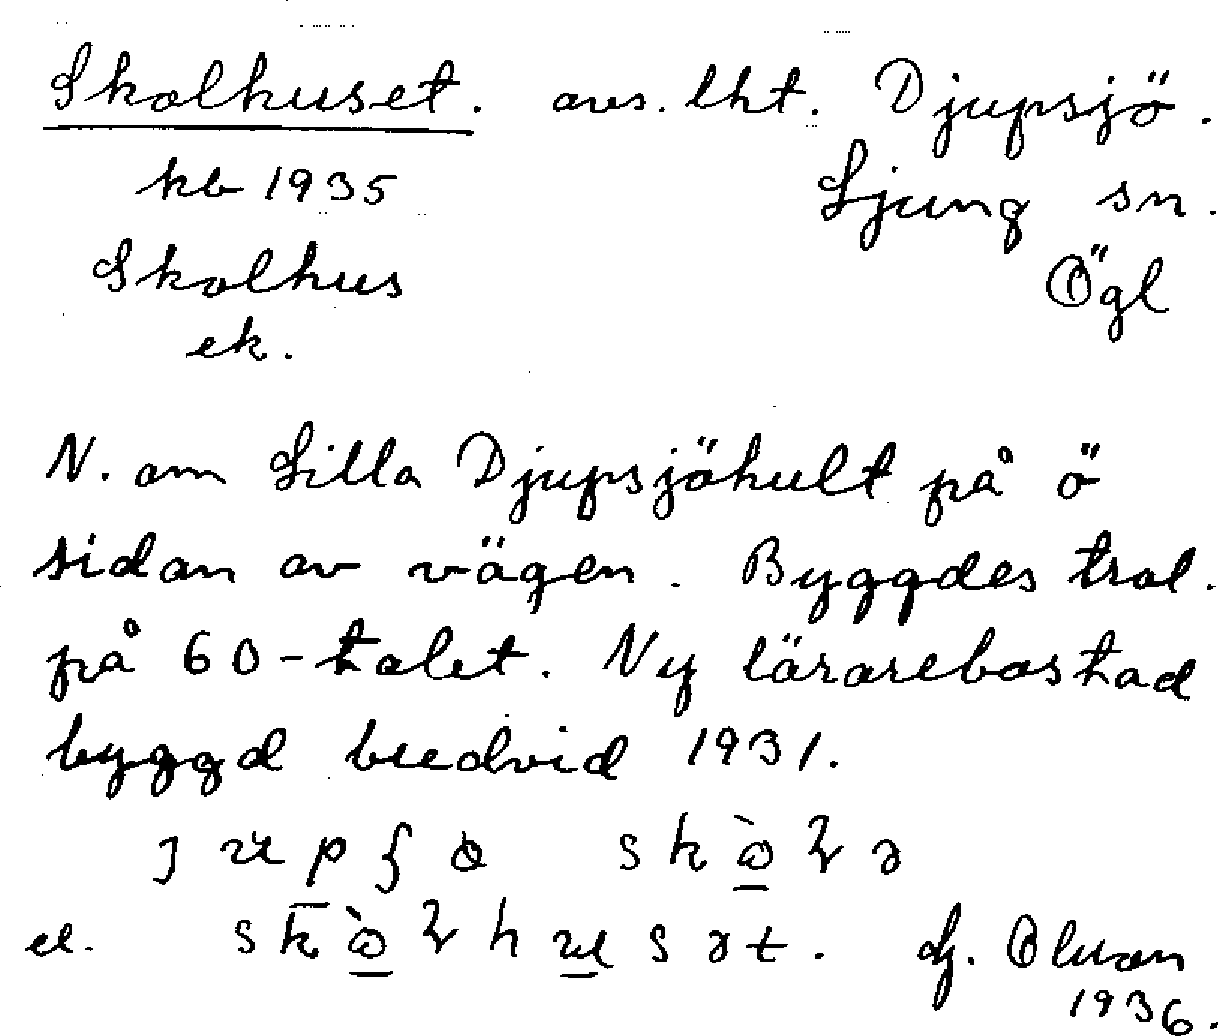 Skolhuset. avs. lht. Djupsjö.
kb 1935 Ljung sn.
Skolhus Ögl
ek.
N. om Lilla Djupsjöhult på ö
sidan av vägen. Byggdes trol.
på 60-talet. Ny lärarebostad
byggd bredvid 1931.
el.
1936.